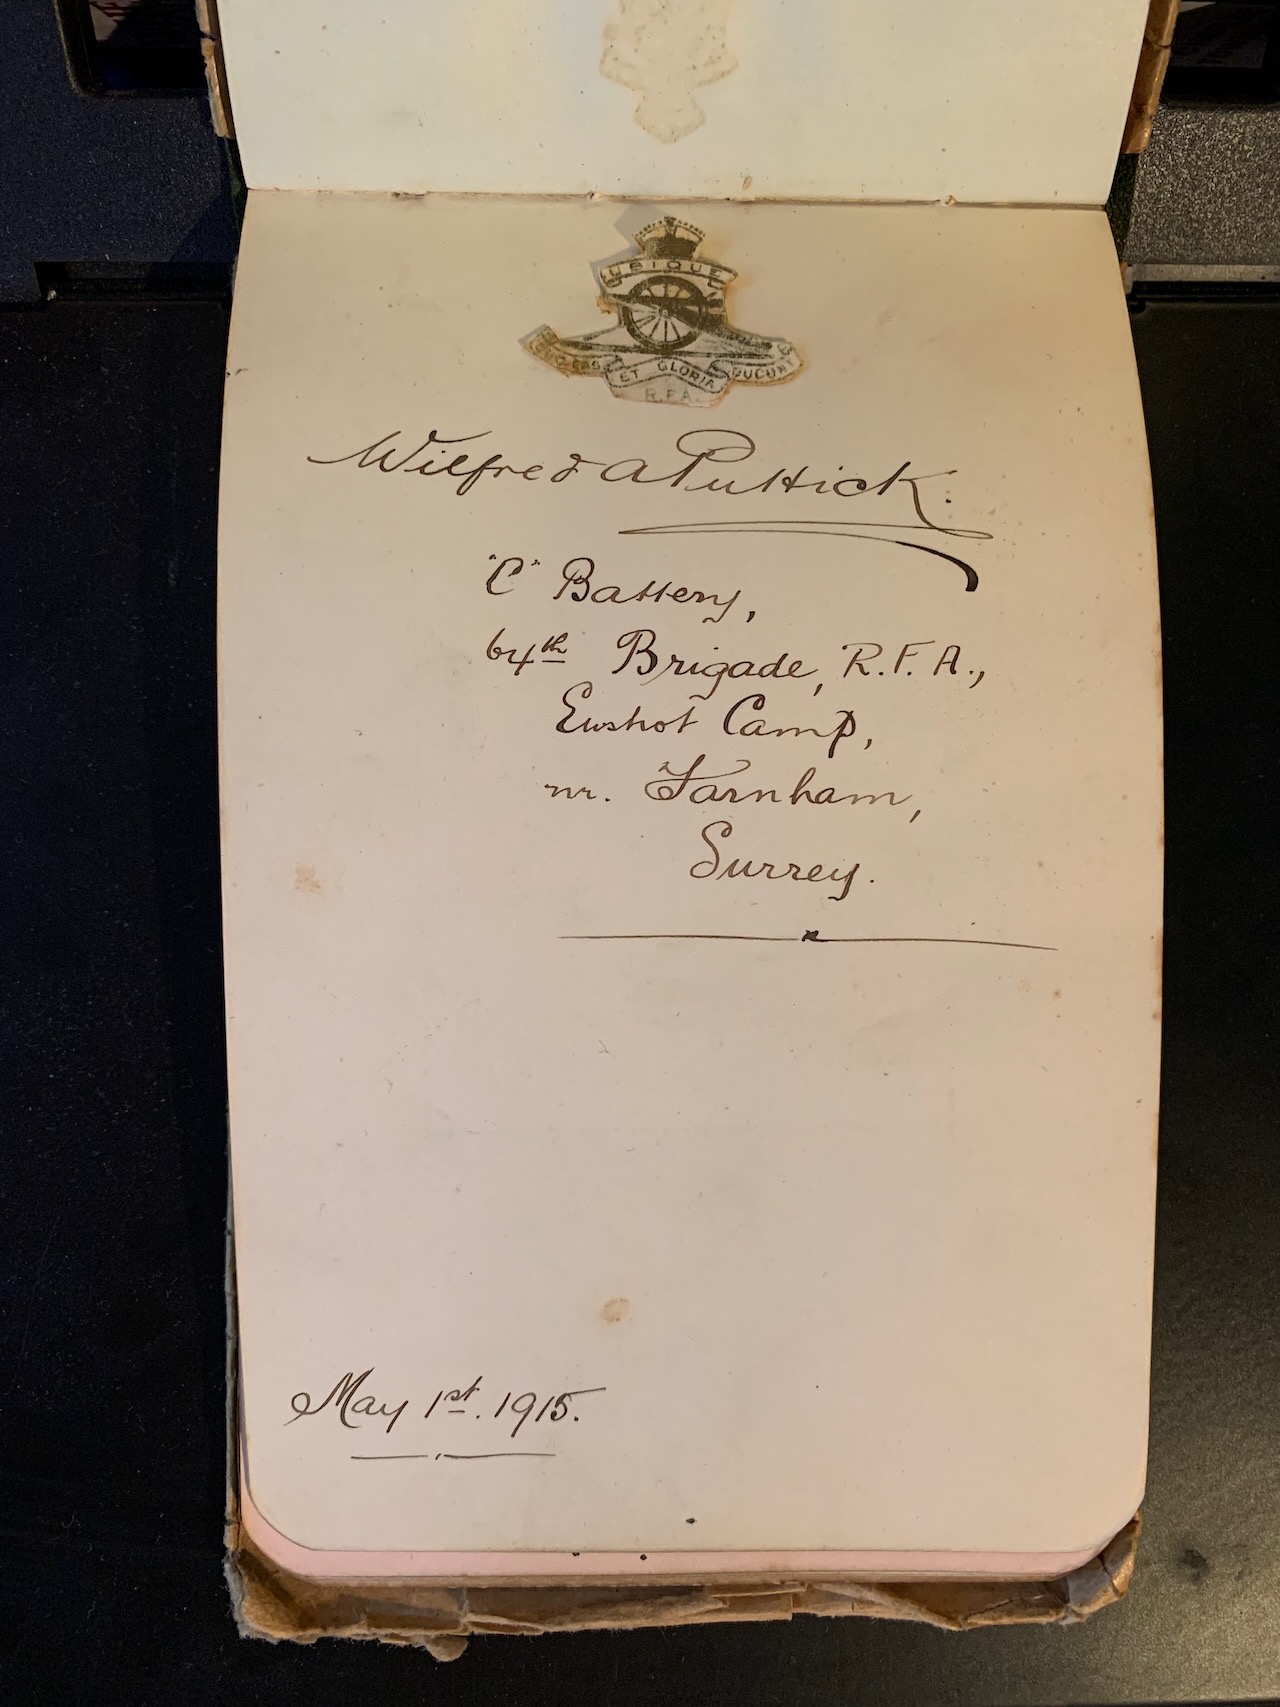 UBIQUE
QUO FAS ET GLORIA DUCUNT
R.F.A.
Wilfred A Puttick.
"C" Battery,
64th Brigade, R.F.A.,
Ewshot Camp,
nr. Farnham,
Surrey.
May 1st. 1915.